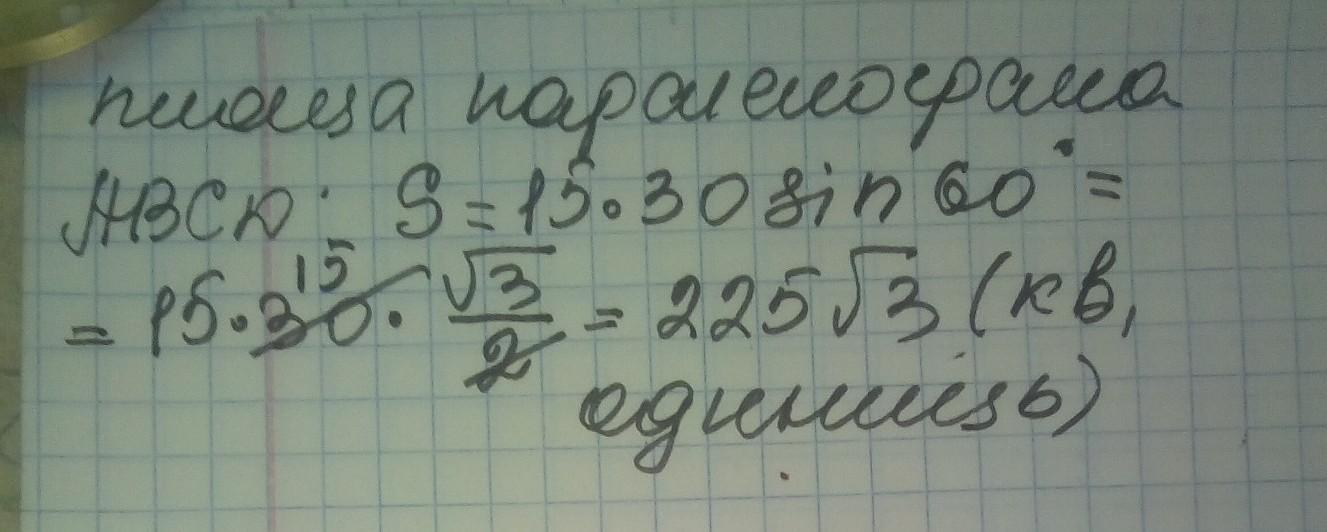 площа паралелограма
ABCD: S = 15 • 30 sin 60° =
= 15 • 30 15 • √3/2 = 225√3 (кв,
одиниць)